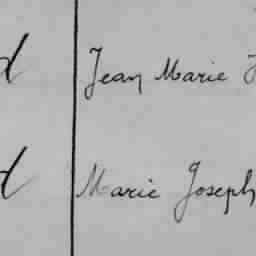 d Jean Marie J
d Marie Joseph